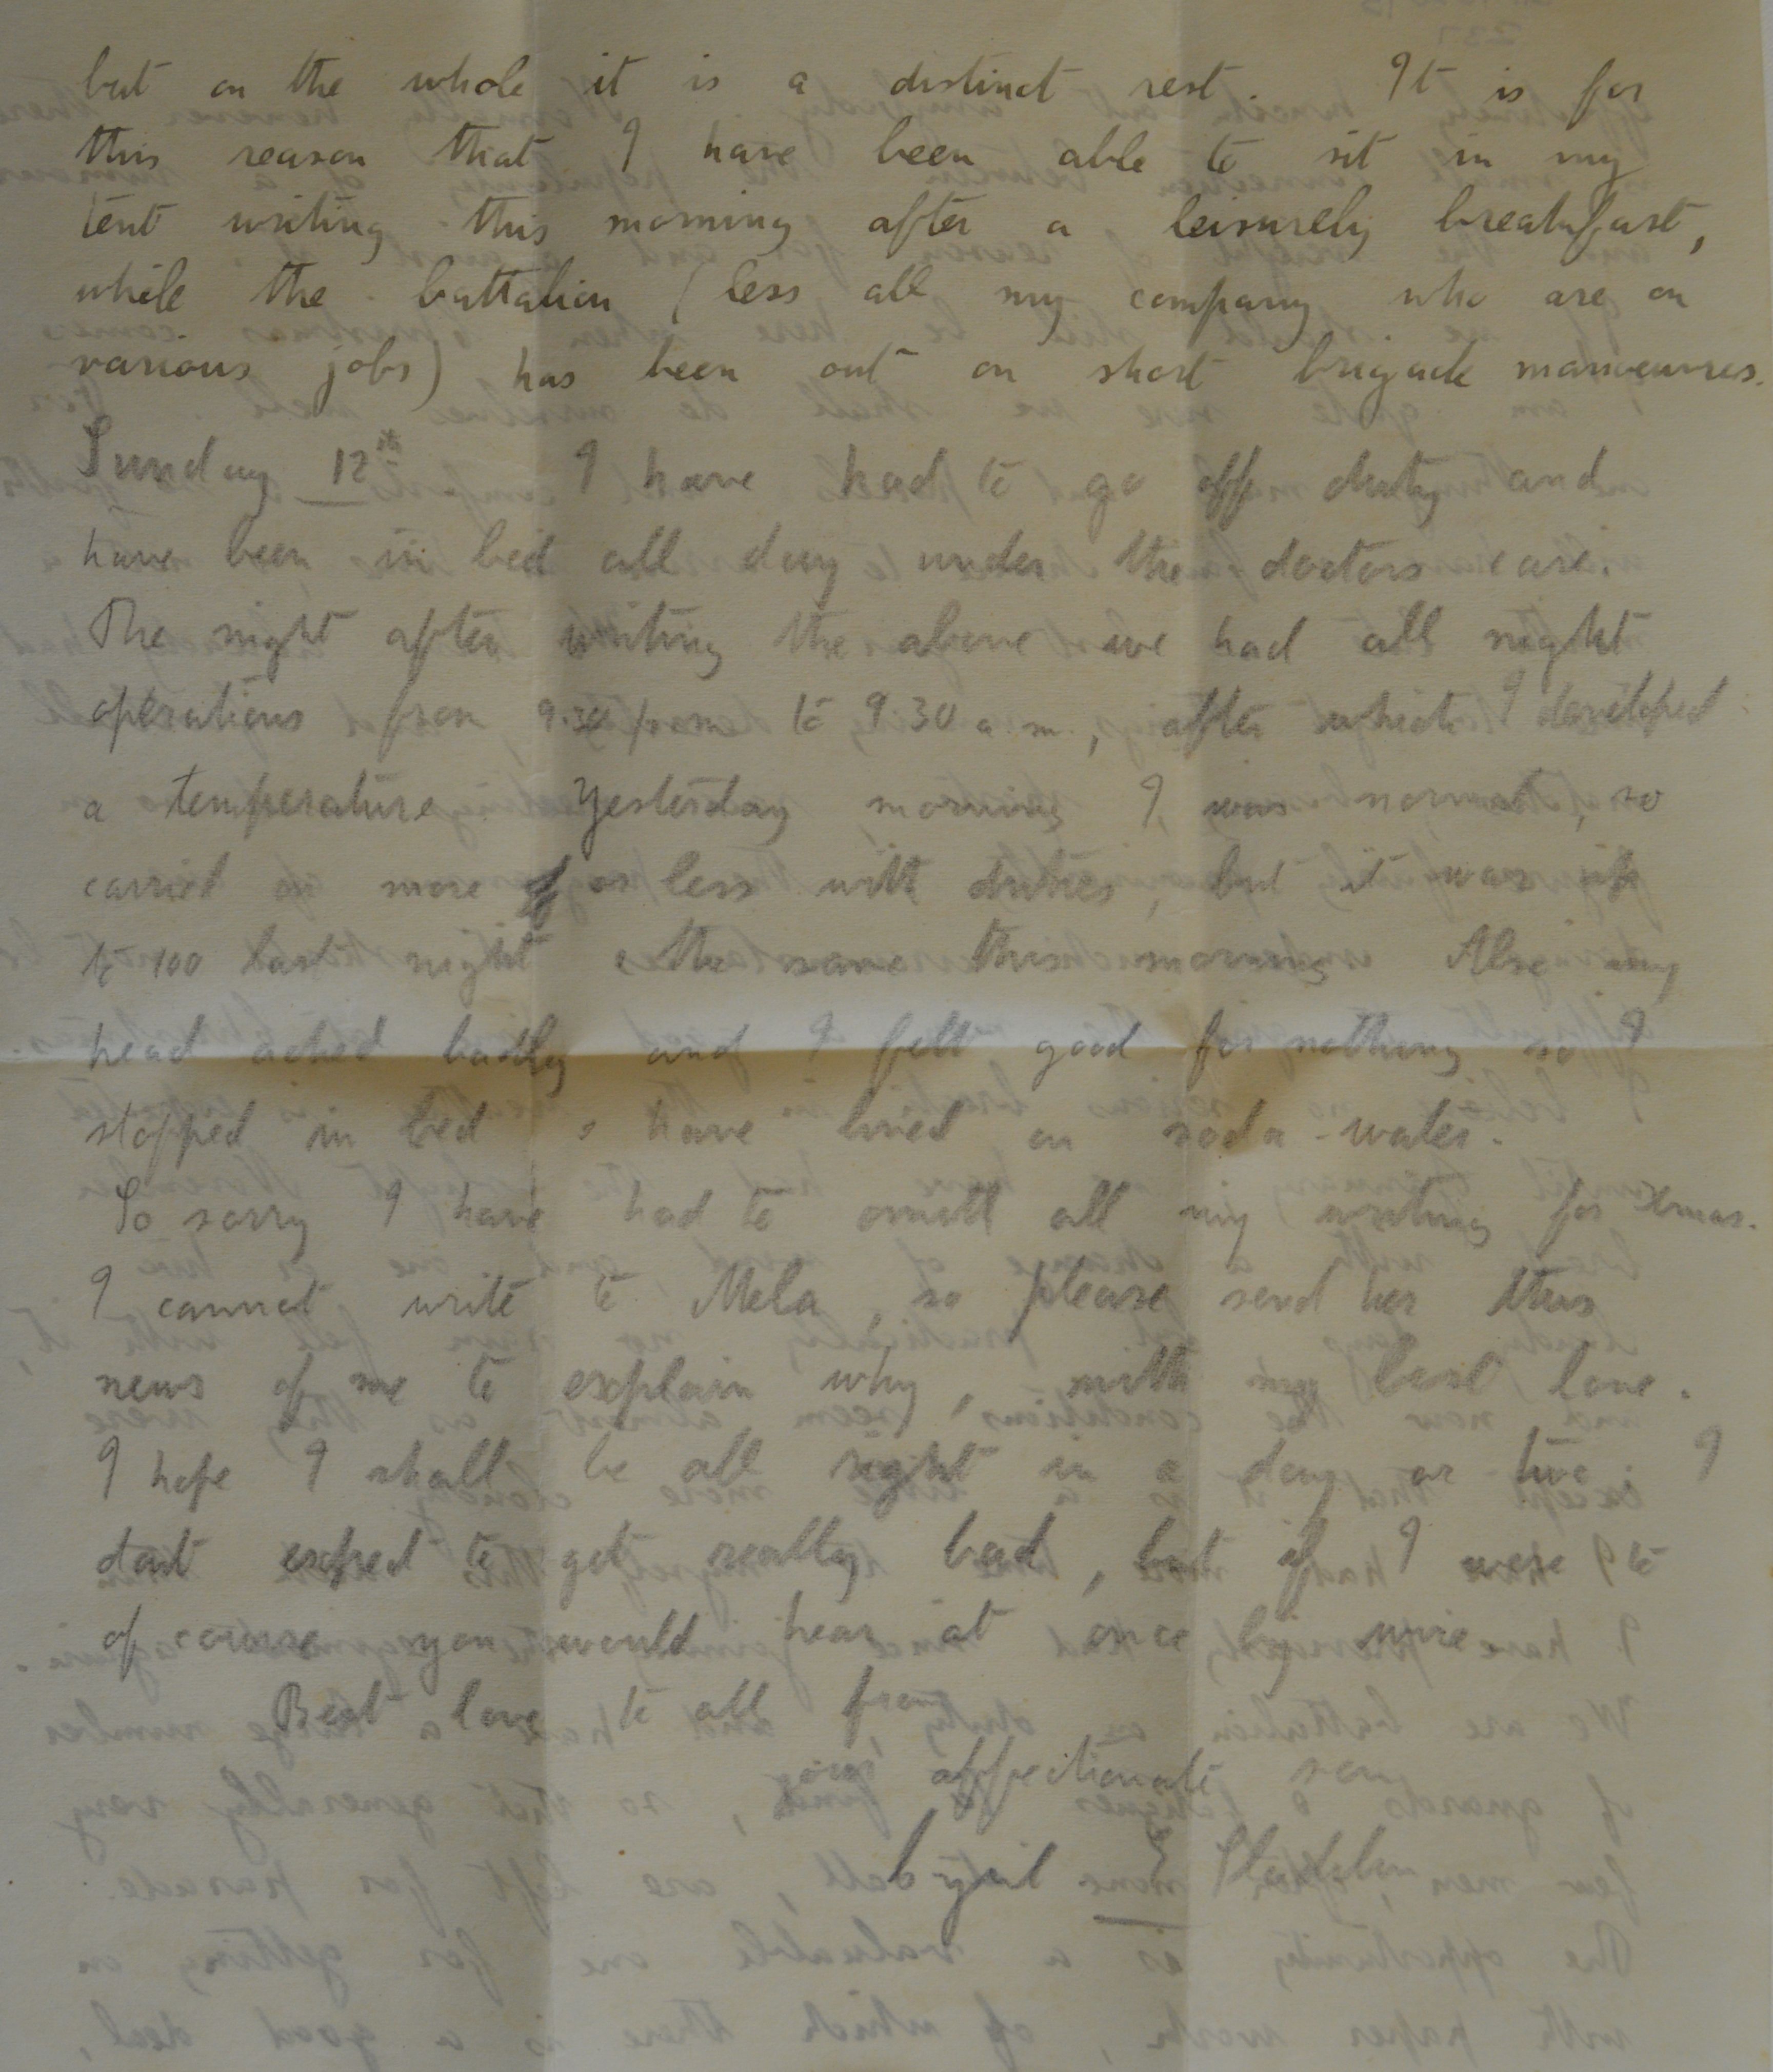 but on the whole it is a distinct rest. It is for
this reason that I have been able to sit in my
tent writing this morning after a leisurely breakfast,
while the battalion (less all my company who are on
various jobs) has been out on short brigade manoeuvres.
Sunday 12th I have had to go off duty and
have been in bed all day under the doctors care.
The night after writing the above we had all night
operations from 9.30 p.m. to 9.30 a.m., after which I developed
a temperature. Yesterday morning I was normal, so
carried on more or less with duties, but it was up
to 100 last night & the same this morning Also my
head ached badly and I felt good for nothing so I
stopped in bed & have lived on soda-water.
So sorry I have had to omitt all my writing for Xmas.
I cannot write to Mela, so please send her this
news of me to explain why, with my best love.
I hope I shall be all right in a day or two. I
dont expect to get really bad, but if I were to
of course you would hear at once by wire
Best love to all from
your affectionate son
Cyril